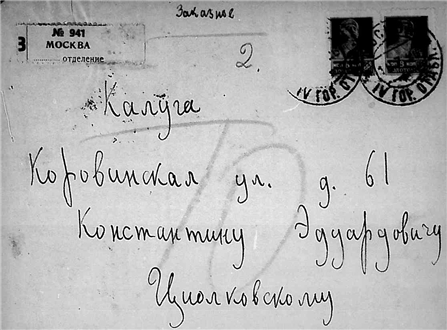 Заказное
З
№ 941
МОСКВА
отделение
2.
IV ГОР. ОТДЕЛ.
IV ГОР. ОТДЕЛ.
Калуга
Коровинская ул. д. 61
Константину Эдуардовичу
Циолковскому